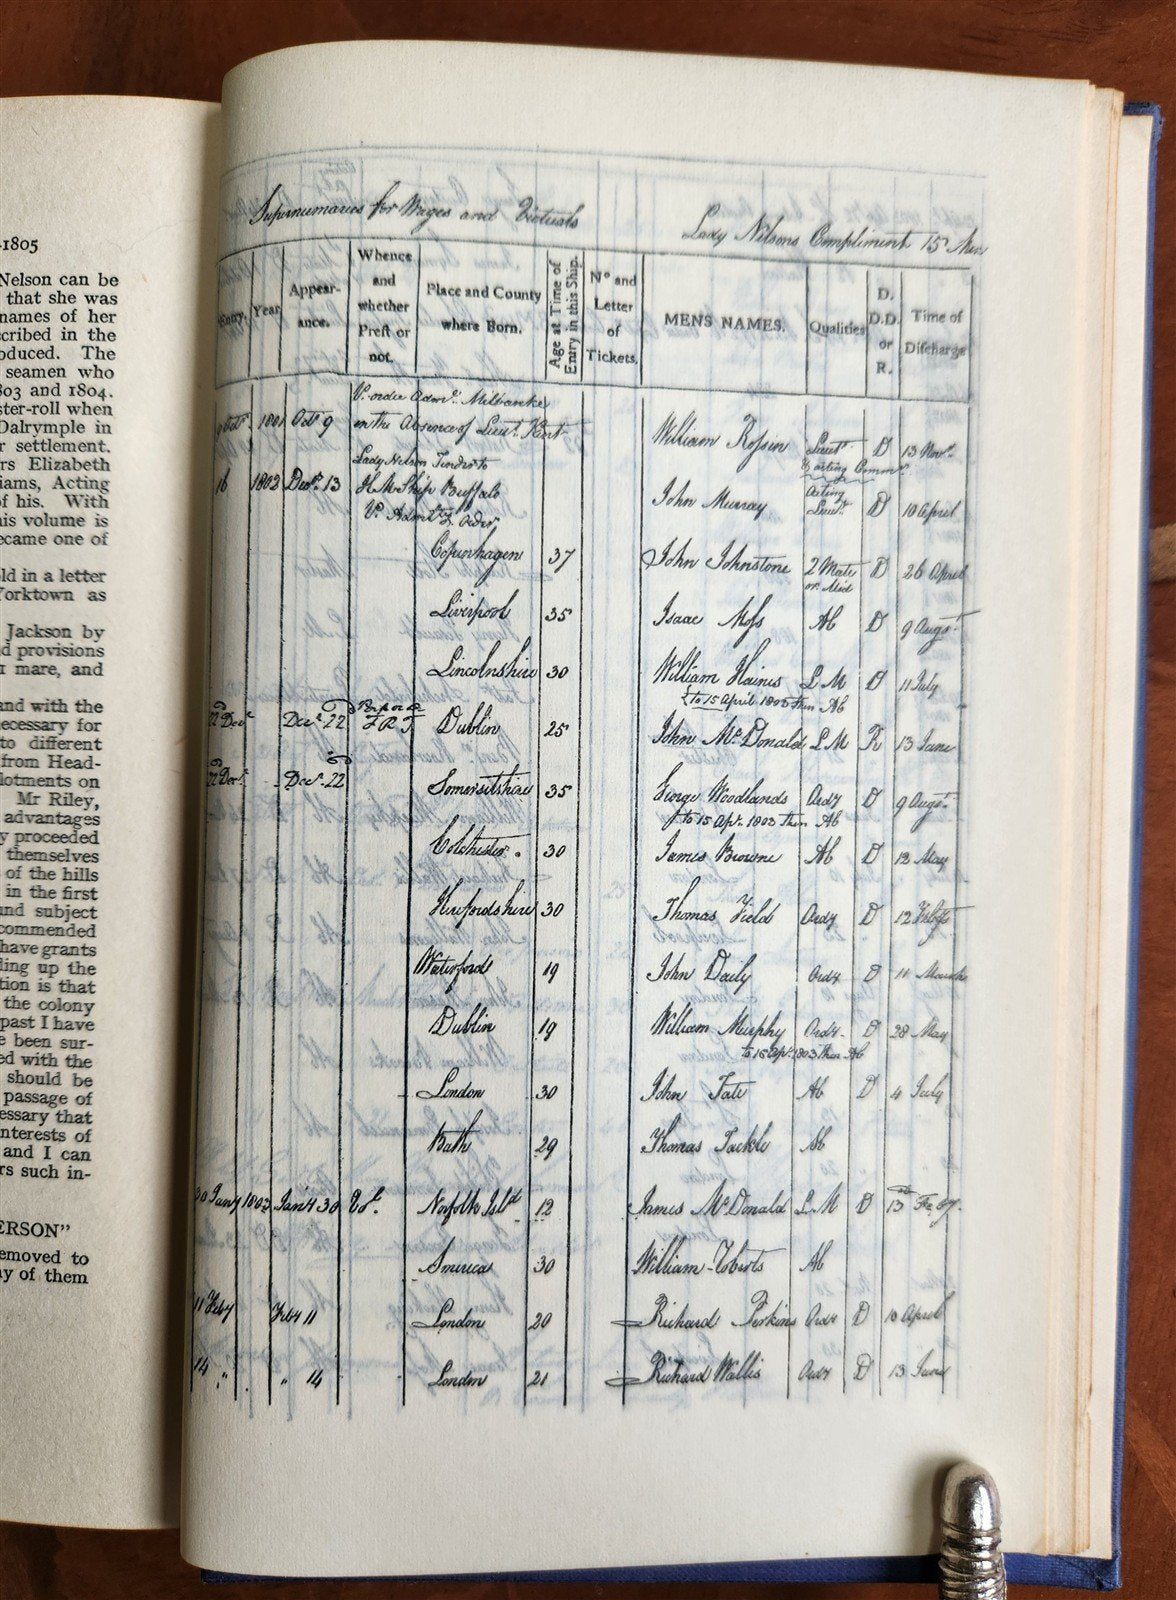 -1805
Nelson can be
that she was
names of her
scribed in the
oduced. The
seamen who
803 and 1804.
ster-roll when
Dalrymple in
r settlement.
rs Elizabeth
iams, Acting
of his. With
his volume is
ecame one of
old in a letter
Yorktown as
Jackson by
nd provisions
1 mare, and
and with the
necessary for
to different
from Head-
lotments on
Mr Riley,
advantages
y proceeded
themselves
of the hills
in the first
und subject
commended
have grants
ding up the
tion is that
the colony
past I have
e been sur-
ed with the
should be
passage of
essary that
nterests of
and I can
rs such in-
ERSON"
emoved to
ny of them
Supernumaries for Wages and Victuals
Lady Nelsons Compliment 15 Men
Entry. Year Appear-ance. Whence and whether Prest or not. Place and County where Born. Age at Time of Entry in this Ship. Nº and Letter of Tickets. MENS NAMES. Qualities D. D.D. or R. Time of Discharge
Octr. 1801 Octr 9 Pr. order Admr. Milbanke in the Absence of Lieut. Kent William Rofsen Lieut. & acting Commr. D 13 Novr.
16 1802 Decr. 13 Lady Nelson Tender to H.M. Ship Buffalo Pr. Admlty order John Murray Acting Lieut. D 10 April
Copenhagen 37 John Johnstone 2 Mate or Mid D 26 April
Liverpool 35 Isaac Mofs Ab D 9 Augst
Lincolnshire 30 William Haines L M D 11 July
to 15 April 1803 then Ab
22 Decr. Decr. 22 Dublin 25 John McDonald L M R 13 June
22 Decr. Decr. 22 Somersetshire 35 George Woodlands Ordy D 9 Augst
to 15 Apr. 1803 then Ab
Colchester. 30 James Browne Ab D 12 May
Herefordshire 30 Thomas Field Ordy D 12
Waterford 19 John Daily Ordy D 11 March
Dublin 19 William Murphy Ordy D 28 May
to 15 Apr. 1803 then Ab
London 30 John Tate Ab D 4 July
Bath 29 Thomas Tackle Ab
30 Jany 1803 Jany 30 Norfolk Isld 12 James McDonald L M D 13
America 30 William Roberts Ab
11 Feby Feby 11 London 20 Richard Perkins Ordy D 10 April
14 " " 14 London 21 Richard Wallis Ordy D 13 June